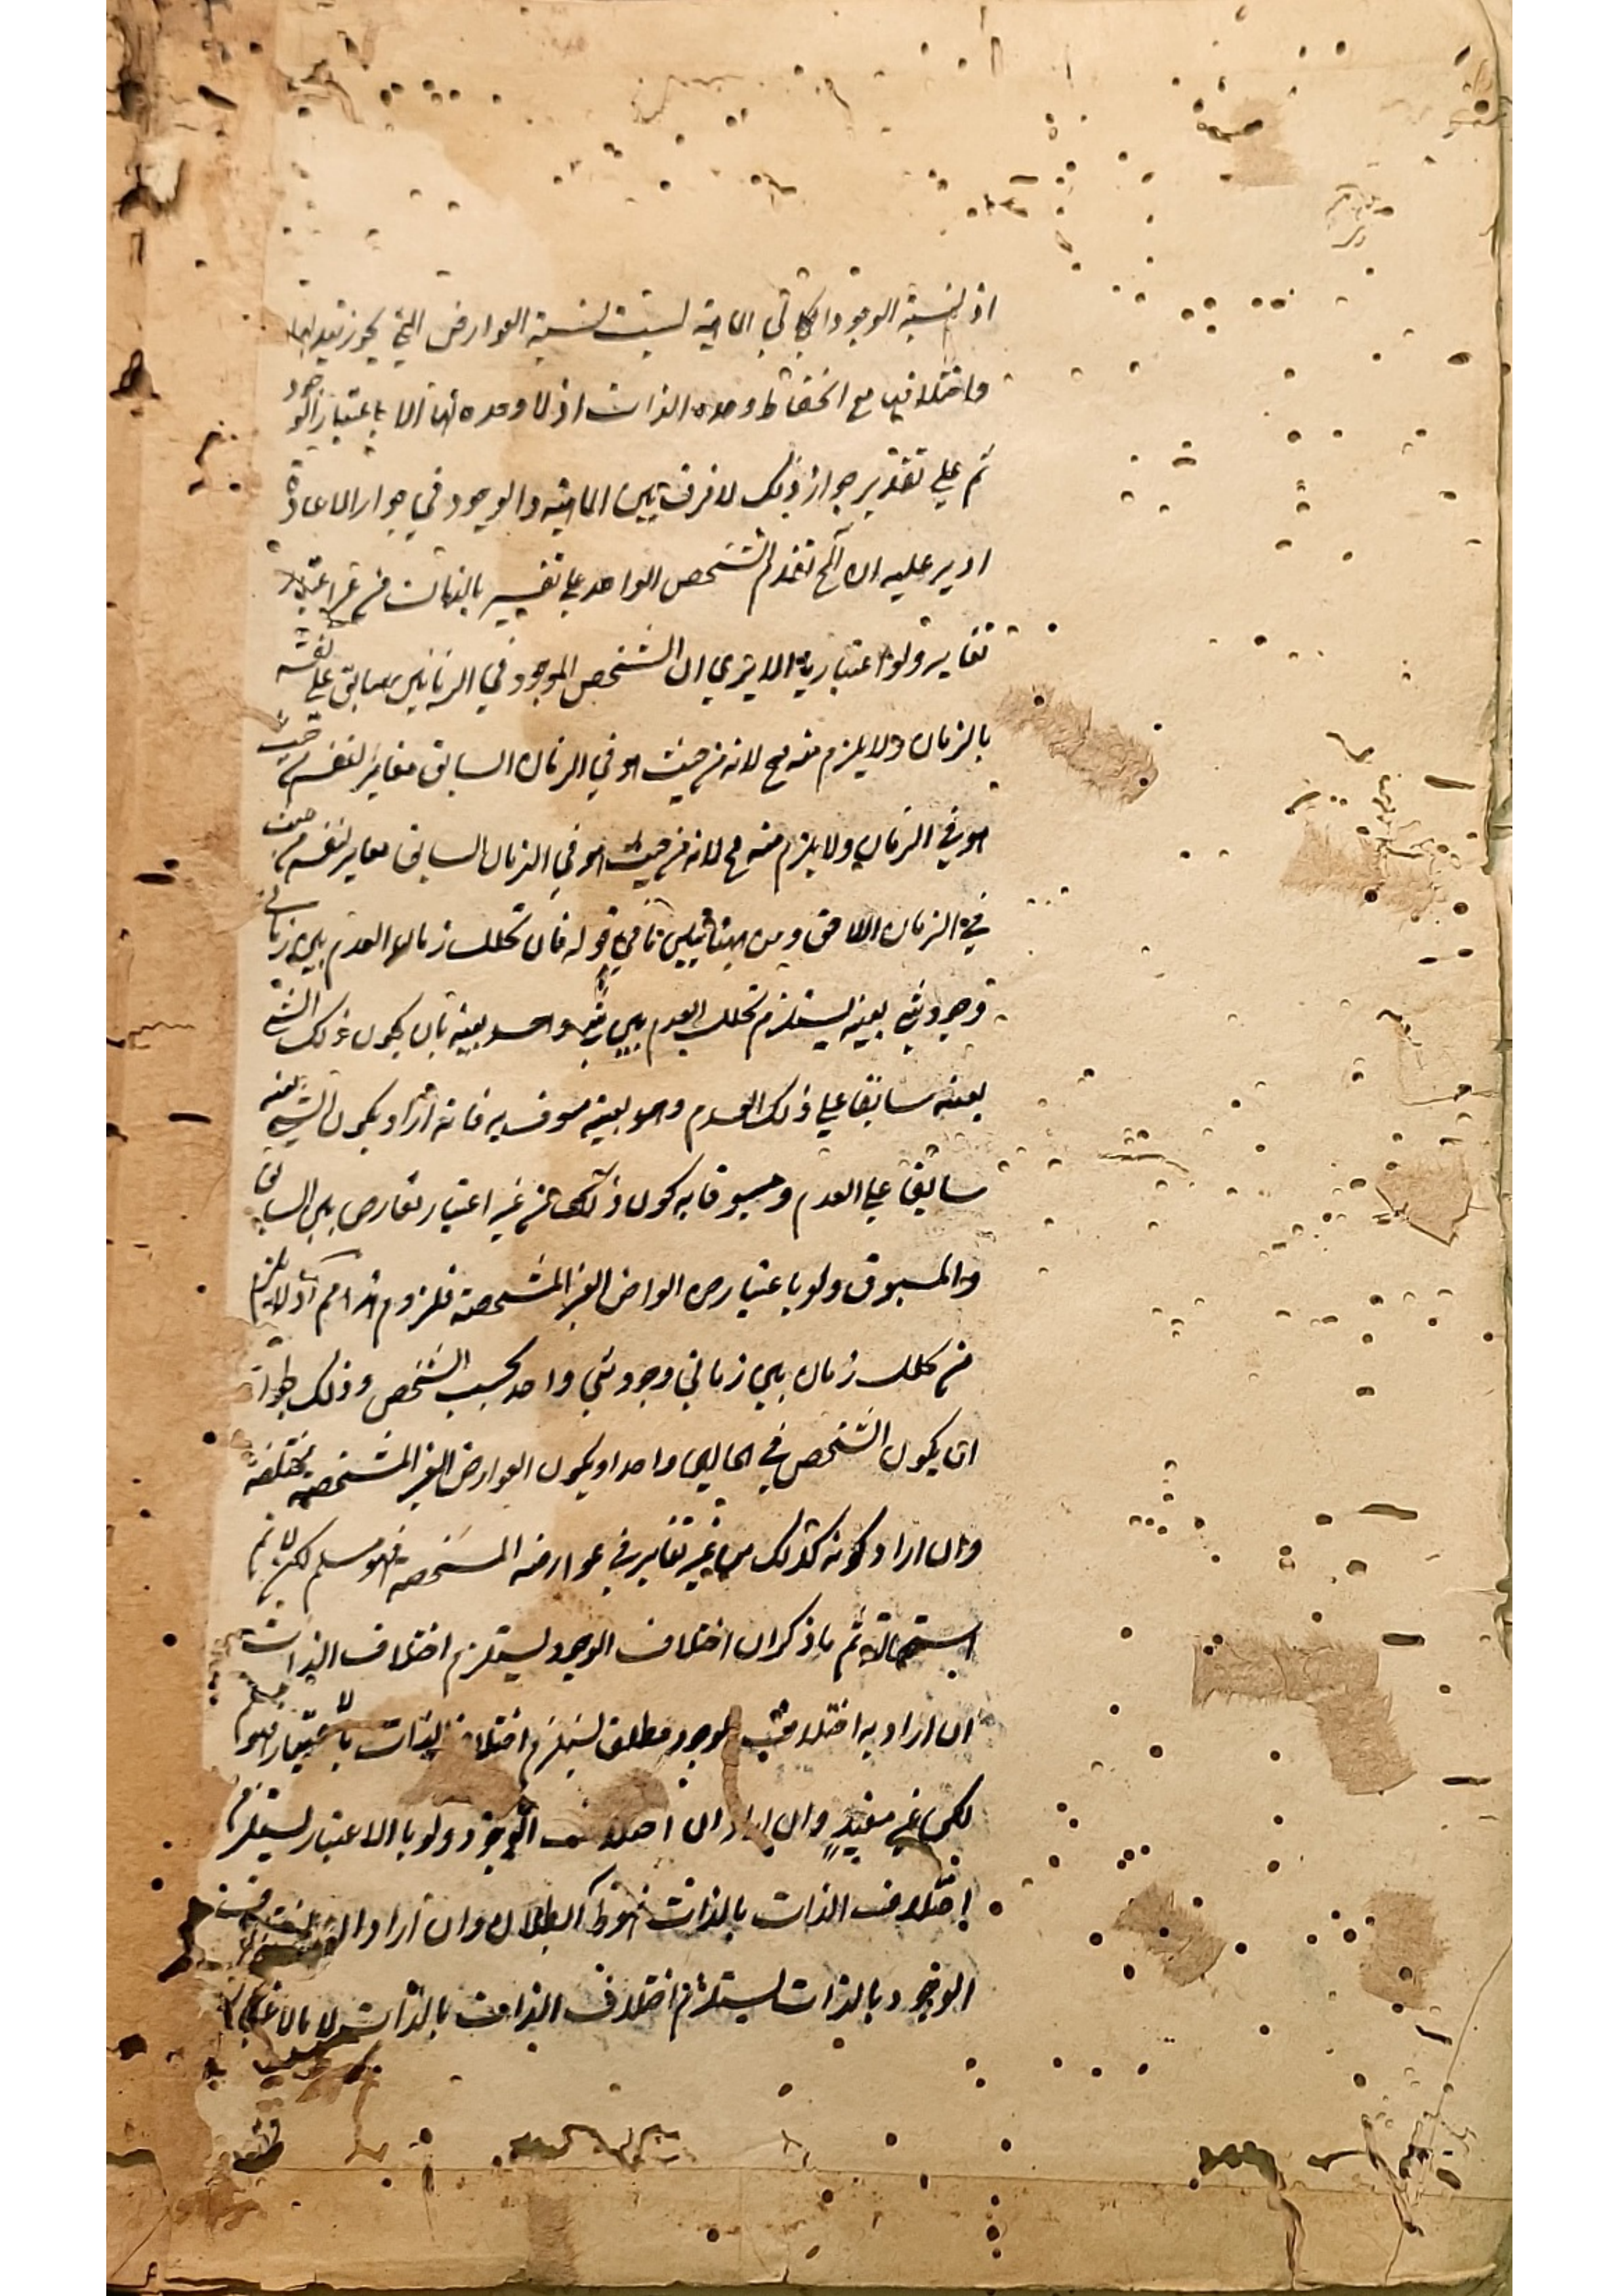 اذ نسبة الوجود الى الماهية ليست نسبة العوارض التي يجوز تبدلها
واختلافها مع انحفاظ وحدة الذات اذ لا وحدة لها الا باعتبار الوجود
ثم على تقدير جواز ذلك لا فرق بين الماهية والوجود في جواز الاعادة
اذ يرد عليه ان المح تقدم الشخص الواحد على نفسه بالذات من غير اعتبار
تغاير ولو اعتباريا الا يرى ان الشخص الموجود في الزمانين سابق على نفسه
بالزمان ولا يلزم منه مح لانه من حيث هو في الزمان السابق مغاير لنفسه من حيث
هو في الزمان ولا يلزم منه مح لانه من حيث هو في الزمان السابق مغاير لنفسه من حيث
في الزمان اللاحق ومن هنا تبين ما في قوله فان تخلل زمان العدم بين زماني
وجود شي بعينه يستلزم تخلل العدم بين شي واحد بعينه بان يكون ذلك الشي
بعينه سابقا على ذلك العدم وهو بعينه مسوق به فانه ان اراد بكون الشي بعينه
سابقا على العدم ومسبوقا به كون ذلك من غير اعتبار تعارض بين السابق
والمسبوق ولو باعتبار من العوارض الغير المشخصة فلزوم هذا مم اذ لا يلزم
من تخلل زمان بين زماني وجود شي واحد بحسب الشخص وذلك لجواز
ان يكون الشخص في الحالين واحدا ويكون العوارض الغير المشخصة مختلفة
وان اراد كونه كذلك من غير تغاير في عوارضه المشخصة فهو مسلم لكن لا نم
استحالته ثم ما ذكر ان اختلاف الوجود يستلزم اختلاف الذات
ان اراد به اختلاف الوجود مطلق يستلزم اختلاف الذات بالاعتبار فهو مسلم
لكن غير مفيد وان اراد ان اختلاف الوجود ولو بالاعتبار يستلزم
اختلاف الذات بالذات فهو ظ البطلان وان اراد ان اختلاف
الوجود بالذات يستلزم اختلاف الذات بالذات لا بالاعتبار